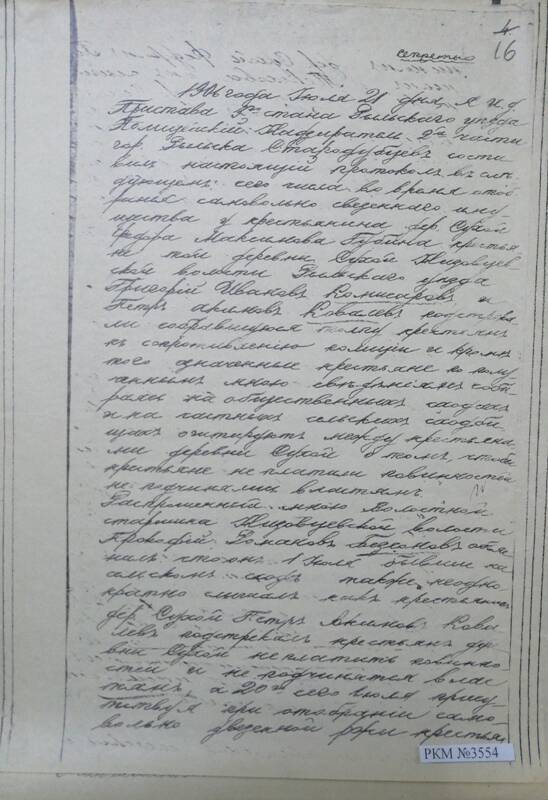 4
16
секретно
1906 года Іюля 21 дня, я и. д.
Пристава 2го стана Рыльскаго уезда
Полицейскій Надзиратель 2й части
гор. Рыльска Стародубцевъ соста
вилъ настоящій протоколъ въ слѣ
дующемъ: сего числа во время отоб
ранія самовольно сведеннаго иму
щества у крестьянина дер. Сухой
Федора Максимова Губина, крестья
не той деревни Сухой
ской волости Рыльскаго уезда
Григорій Ивановъ Комисаровъ и
Петръ Акимовъ Ковалевъ подстрека
ли собравшуюся толпу крестьянъ
къ сопротивленію полиціи и кромѣ
того означенные крестьяне по полу
ченнымъ мною свѣдѣніямъ соби
раясь на общественныхъ сходахъ
и на частныхъ сельскихъ сходби
щахъ агитируютъ между крестьяна
ми деревни Сухой о томъ, чтобы
крестьяне не платили повинностей
не подчинялись властямъ.
Распрошенный мною волостной
старшина волости
Прокофій Романовъ объяс
нилъ что онъ 1 Іюля бывши на
сельскомъ сходѣ также неодно
кратно слышалъ какъ крестьянинъ
дер. Сухой Петръ Акимовъ Кова
левъ подстрекалъ крестьянъ дер
вни Сухой не платить повинно
стей и не подчинятся влас
тямъ, а 20го сего Іюля присут
ствуя при отобраніи само
вольно увезенной ржи крестьян
РКМ №3554